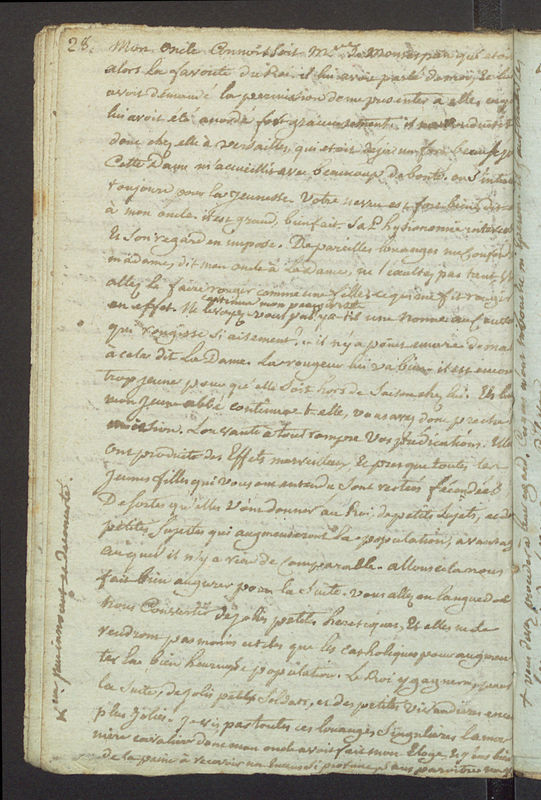 28. Mon oncle connoissoit Mme de Montespan qui etoit
alors la favorite du Roi. il lui avoit parlé de moi, et lui
avoit demandé la permission de me presenter à elle, ce qui
lui avoit eté acordé fort gracieusement. il me conduisit
donc chez elle à versailles, qui etoit deja un fort beau
Cette Dame m'acueillit avec beaucoup de bonté. on s'interesse
toujours pour la jeunesse. Votre neveu est fort bien, dit-
à mon oncle. il est grand, bienfait. Sa Physionomie interesse
Et son regard en impose. De pareilles louanges me
madame, dit mon oncle à la dame, ne l'
allez le faire rougir comme une fille. ce qui me fit rougir
en effet. Ne le voyez-vous pas, continua mon
qui rougisse si aisement? il n'y a point encore de mal
à cela dit la Dame. La rougeur lui va bien. il est encore
trop jeune pour que elle soit hors de saison chez lui. Eh bien
mon jeune abbé continua-t-elle, vous avez donc preché
mission. L'on vante à tout rompre vos prédications. Elles
ont produits des Effets merveilleux et presque toutes les
jeunes filles qui vous ont entendu sont restées fécondées
De sortes qu'elles vont donner au Roi de petits sujets, et de
petites sujettes qui augmenteront la population, avantage
auquel il n'y a rien de comparable. allons cela nous
fait bien augurer pour la suite. vous allez en languedoc
nous convertir de jolies petites heretiques, Et elles ne
rendront pas moins utiles que les catholiques pour augmen
ter la bien heureuse population. Le Roi y gagnera, pour
la suite, de jolis petits soldats, et des petites vivandieres encore
plus jolies. je vis par toutes ces louanges singulieres
niere cavaliere dont mon oncle avoit fait mon Eloge, Et j'eus bien
de la peine à recevoir un encens si profane, sans paroitre